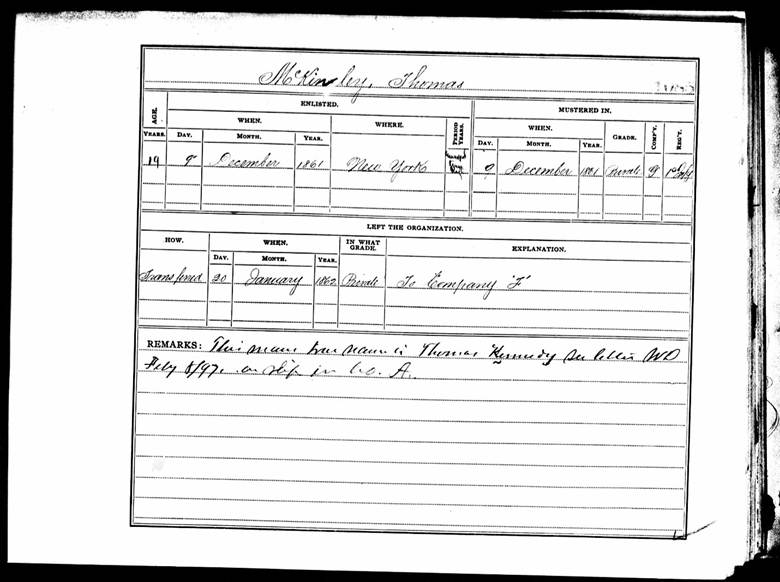 McKinley, Thomas
ENLISTED. MUSTERED IN.
AGE. WHEN. WHERE. PERIOD YEARS. WHEN. GRADE. COMP'Y. REG'T.
YEARS. DAY. MONTH. YEAR. DAY. MONTH. YEAR.
19 9 December 1861 New York 9 December 1861 Private G
LEFT THE ORGANIZATION.
HOW. WHEN. IN WHAT GRADE. EXPLANATION.
DAY. MONTH. YEAR.
Transferred 20 January 1862 Private To Company "F"
REMARKS: This mans true name is Thomas Kennedy see letter WD
Feby 8/97. on slip in Co. A.